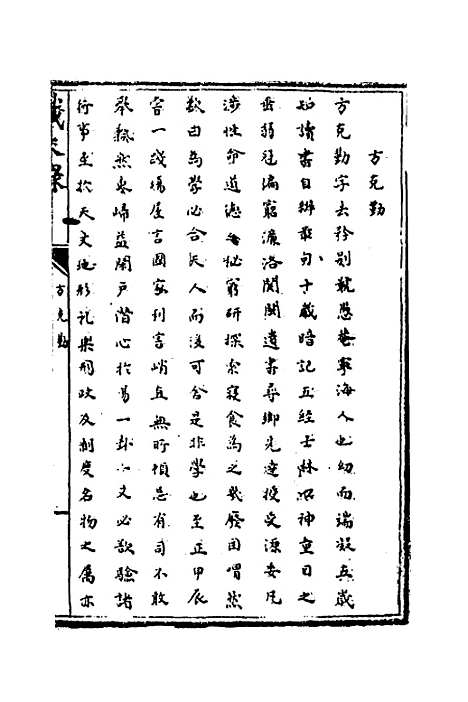 方克勤
方克勤字去矜別號愚菴寧海人也幼而端凝五歲
知讀書自辨章句十歲暗記五經士林以神童目之
甫弱冠徧窮濂洛關閩遺書尋鄉先達授受源委凡
涉性命道德之秘窮研探索寢食為之幾廢因喟然
歎曰為學必合天人而後可舍是非學也至正甲辰
嘗一踐場屋言國家利害峭直無所慎忌有司不敢
舉飄然東歸益閉戶潛心於易一卦一爻必欲驗諸
行事至於天文地形礼樂刑政及制度名物之属亦
方克勤